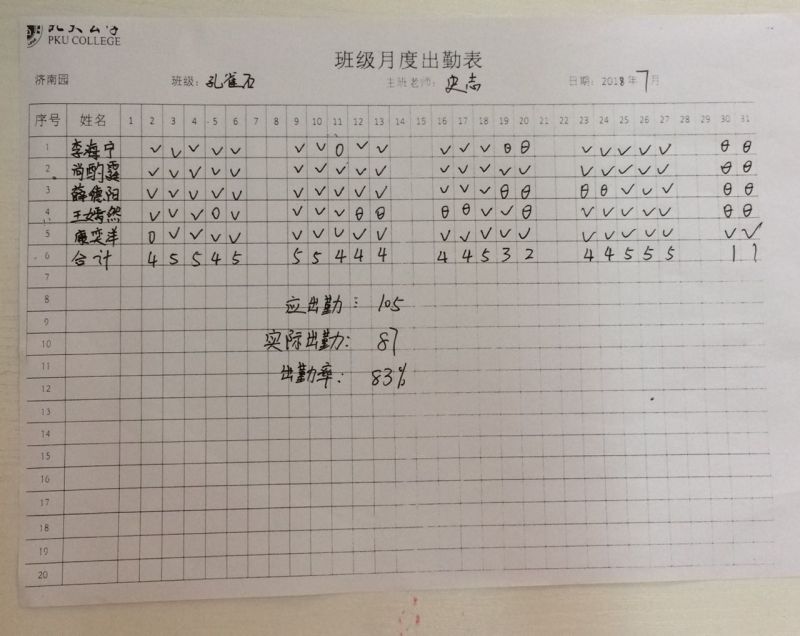 PKU COLLEGE
班级月度出勤表
济南园 班级: 孔雀石 主班老师: 史志 日期: 2018年7月
序号 姓名 1 2 3 4 5 6 7 8 9 10 11 12 13 14 15 16 17 18 19 20 21 22 23 24 25 26 27 28 29 30 31
1 李海宁 ✓ ✓ ✓ ✓ ✓ ✓ ✓ O ✓ ✓ ✓ ✓ ✓ θ θ ✓ ✓ ✓ ✓ ✓ θ θ
2 尚 ✓ ✓ ✓ ✓ ✓ ✓ ✓ ✓ ✓ ✓ ✓ ✓ ✓ ✓ ✓ ✓ ✓ ✓ ✓ ✓ θ θ
3 薛德阳 ✓ ✓ ✓ ✓ ✓ ✓ ✓ ✓ ✓ ✓ ✓ ✓ ✓ θ θ θ θ ✓ ✓ ✓ θ θ
4 王嫣然 ✓ ✓ ✓ O ✓ ✓ ✓ ✓ θ θ θ θ ✓ ✓ θ ✓ ✓ ✓ ✓ ✓ θ θ
5 康奕洋 O ✓ ✓ ✓ ✓ ✓ ✓ ✓ ✓ ✓ ✓ ✓ ✓ ✓ ✓ ✓ ✓ ✓ ✓ ✓ ✓ ✓
6 合计 4 5 5 4 5 5 5 4 4 4 4 4 5 3 2 4 4 5 5 5 1 1
7
8 应出勤: 105
9
10 实际出勤: 87
11 出勤率: 83%
12
13
14
15
16
17
18
19
20